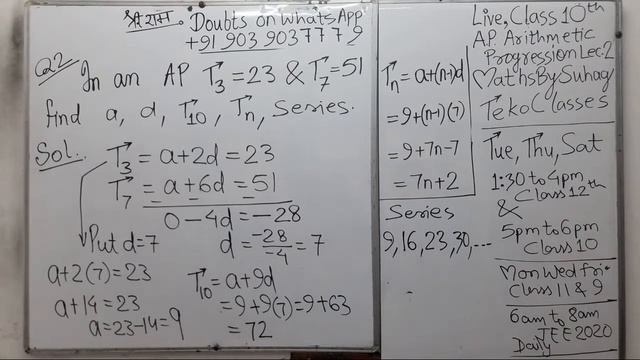 श्री राम. Doubts on WhatsApp
+91 903 903 7779
Q2 In an AP T₃ = 23 & T₇ = 51
find a, d, T₁₀, Tₙ, Series.
Sol. T₃ = a + 2d = 23
T₇ = a + 6d = 51
0 - 4d = -28
Put d = 7
d = -28/-4 = 7
a + 2(7) = 23
a + 14 = 23
a = 23 - 14 = 9
T₁₀ = a + 9d
= 9 + 9(7) = 9 + 63
= 72
Tₙ = a + (n-1)d
= 9 + (n-1)(7)
= 9 + 7n - 7
= 7n + 2
Series
9, 16, 23, 30, ...
Live, Class 10th
A.P. Arithmetic
Progression Lec. 2
Maths By Suhag
Teko Classes
Tue, Thu, Sat
1:30 to 4pm
Class 12th
&
5pm to 6pm
Class 10
Mon Wed Fri.
Class 11 & 9
6am to 8am
JEE 2020
Daily